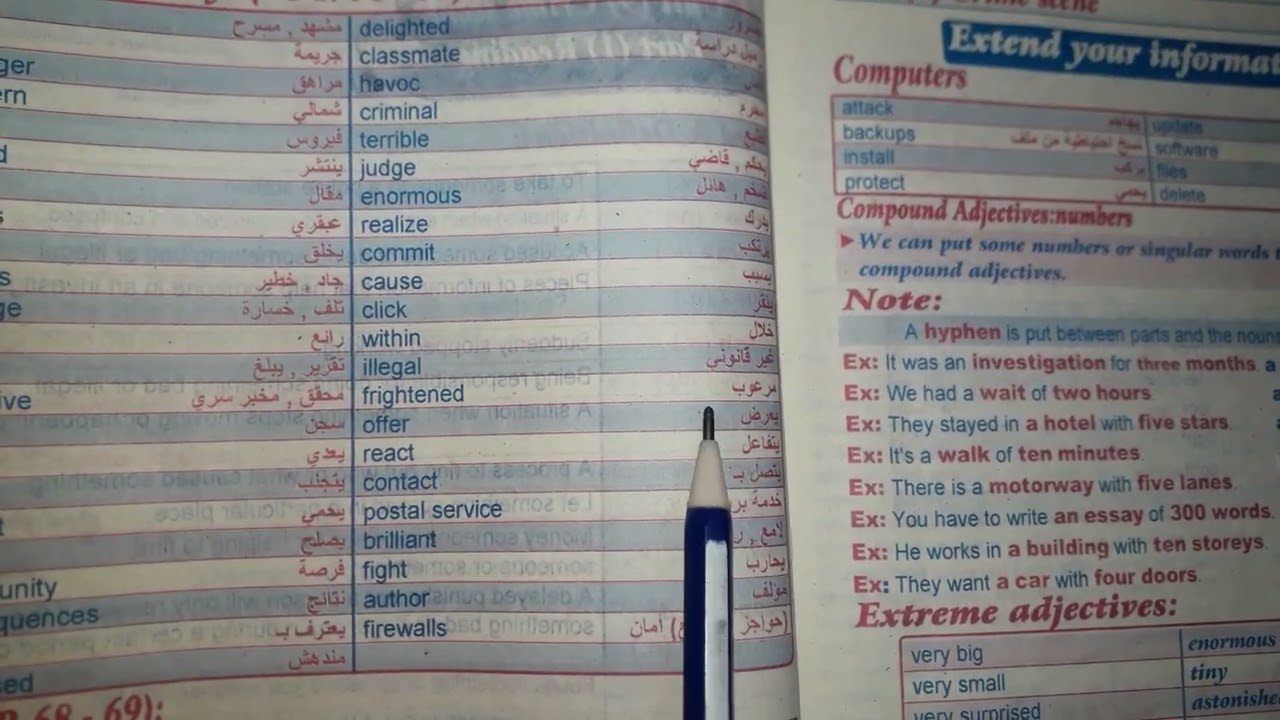 مشهد , مسرح delighted مسرور
جريمة classmate زميل دراسة
ger مراهق havoc
ern شمالي criminal مجرم
فيروس terrible فظيع
d ينتشر judge يحكم , قاضي
مقال enormous ضخم , هائل
s عبقري realize يدرك
يخلق commit يرتكب
s جاد , خطير cause يسبب
ge تلف , خسارة click ينقر
رائع within خلال
تقرير , يبلغ illegal غير قانوني
ive محقق , مخبر سري frightened مرعوب
سجن offer يعرض
يعدي react يتفاعل
يتجنب contact يتصل بـ
t يحمي postal service خدمة بر
يصلح brilliant لامع , ر
فرصة fight يحارب
unity نتائج author مؤلف
quences يعترف بـ firewalls (حواجز ع) أمان
ed مندهش
68 - 69):
scene
Extend your informat
Computers
attack يهاجم update
backups نسخ احتياطية من ملف software
install يركب files
protect يحمي delete
Compound Adjectives:numbers
►We can put some numbers or singular words t
compound adjectives.
Note:
A hyphen is put between parts and the noun
Ex: It was an investigation for three months. a
Ex: We had a wait of two hours.
Ex: They stayed in a hotel with five stars.
Ex: It's a walk of ten minutes.
Ex: There is a motorway with five lanes.
Ex: You have to write an essay of 300 words.
Ex: He works in a building with ten storeys.
Ex: They want a car with four doors.
Extreme adjectives:
very big enormous
very small tiny
very surprised astonishe